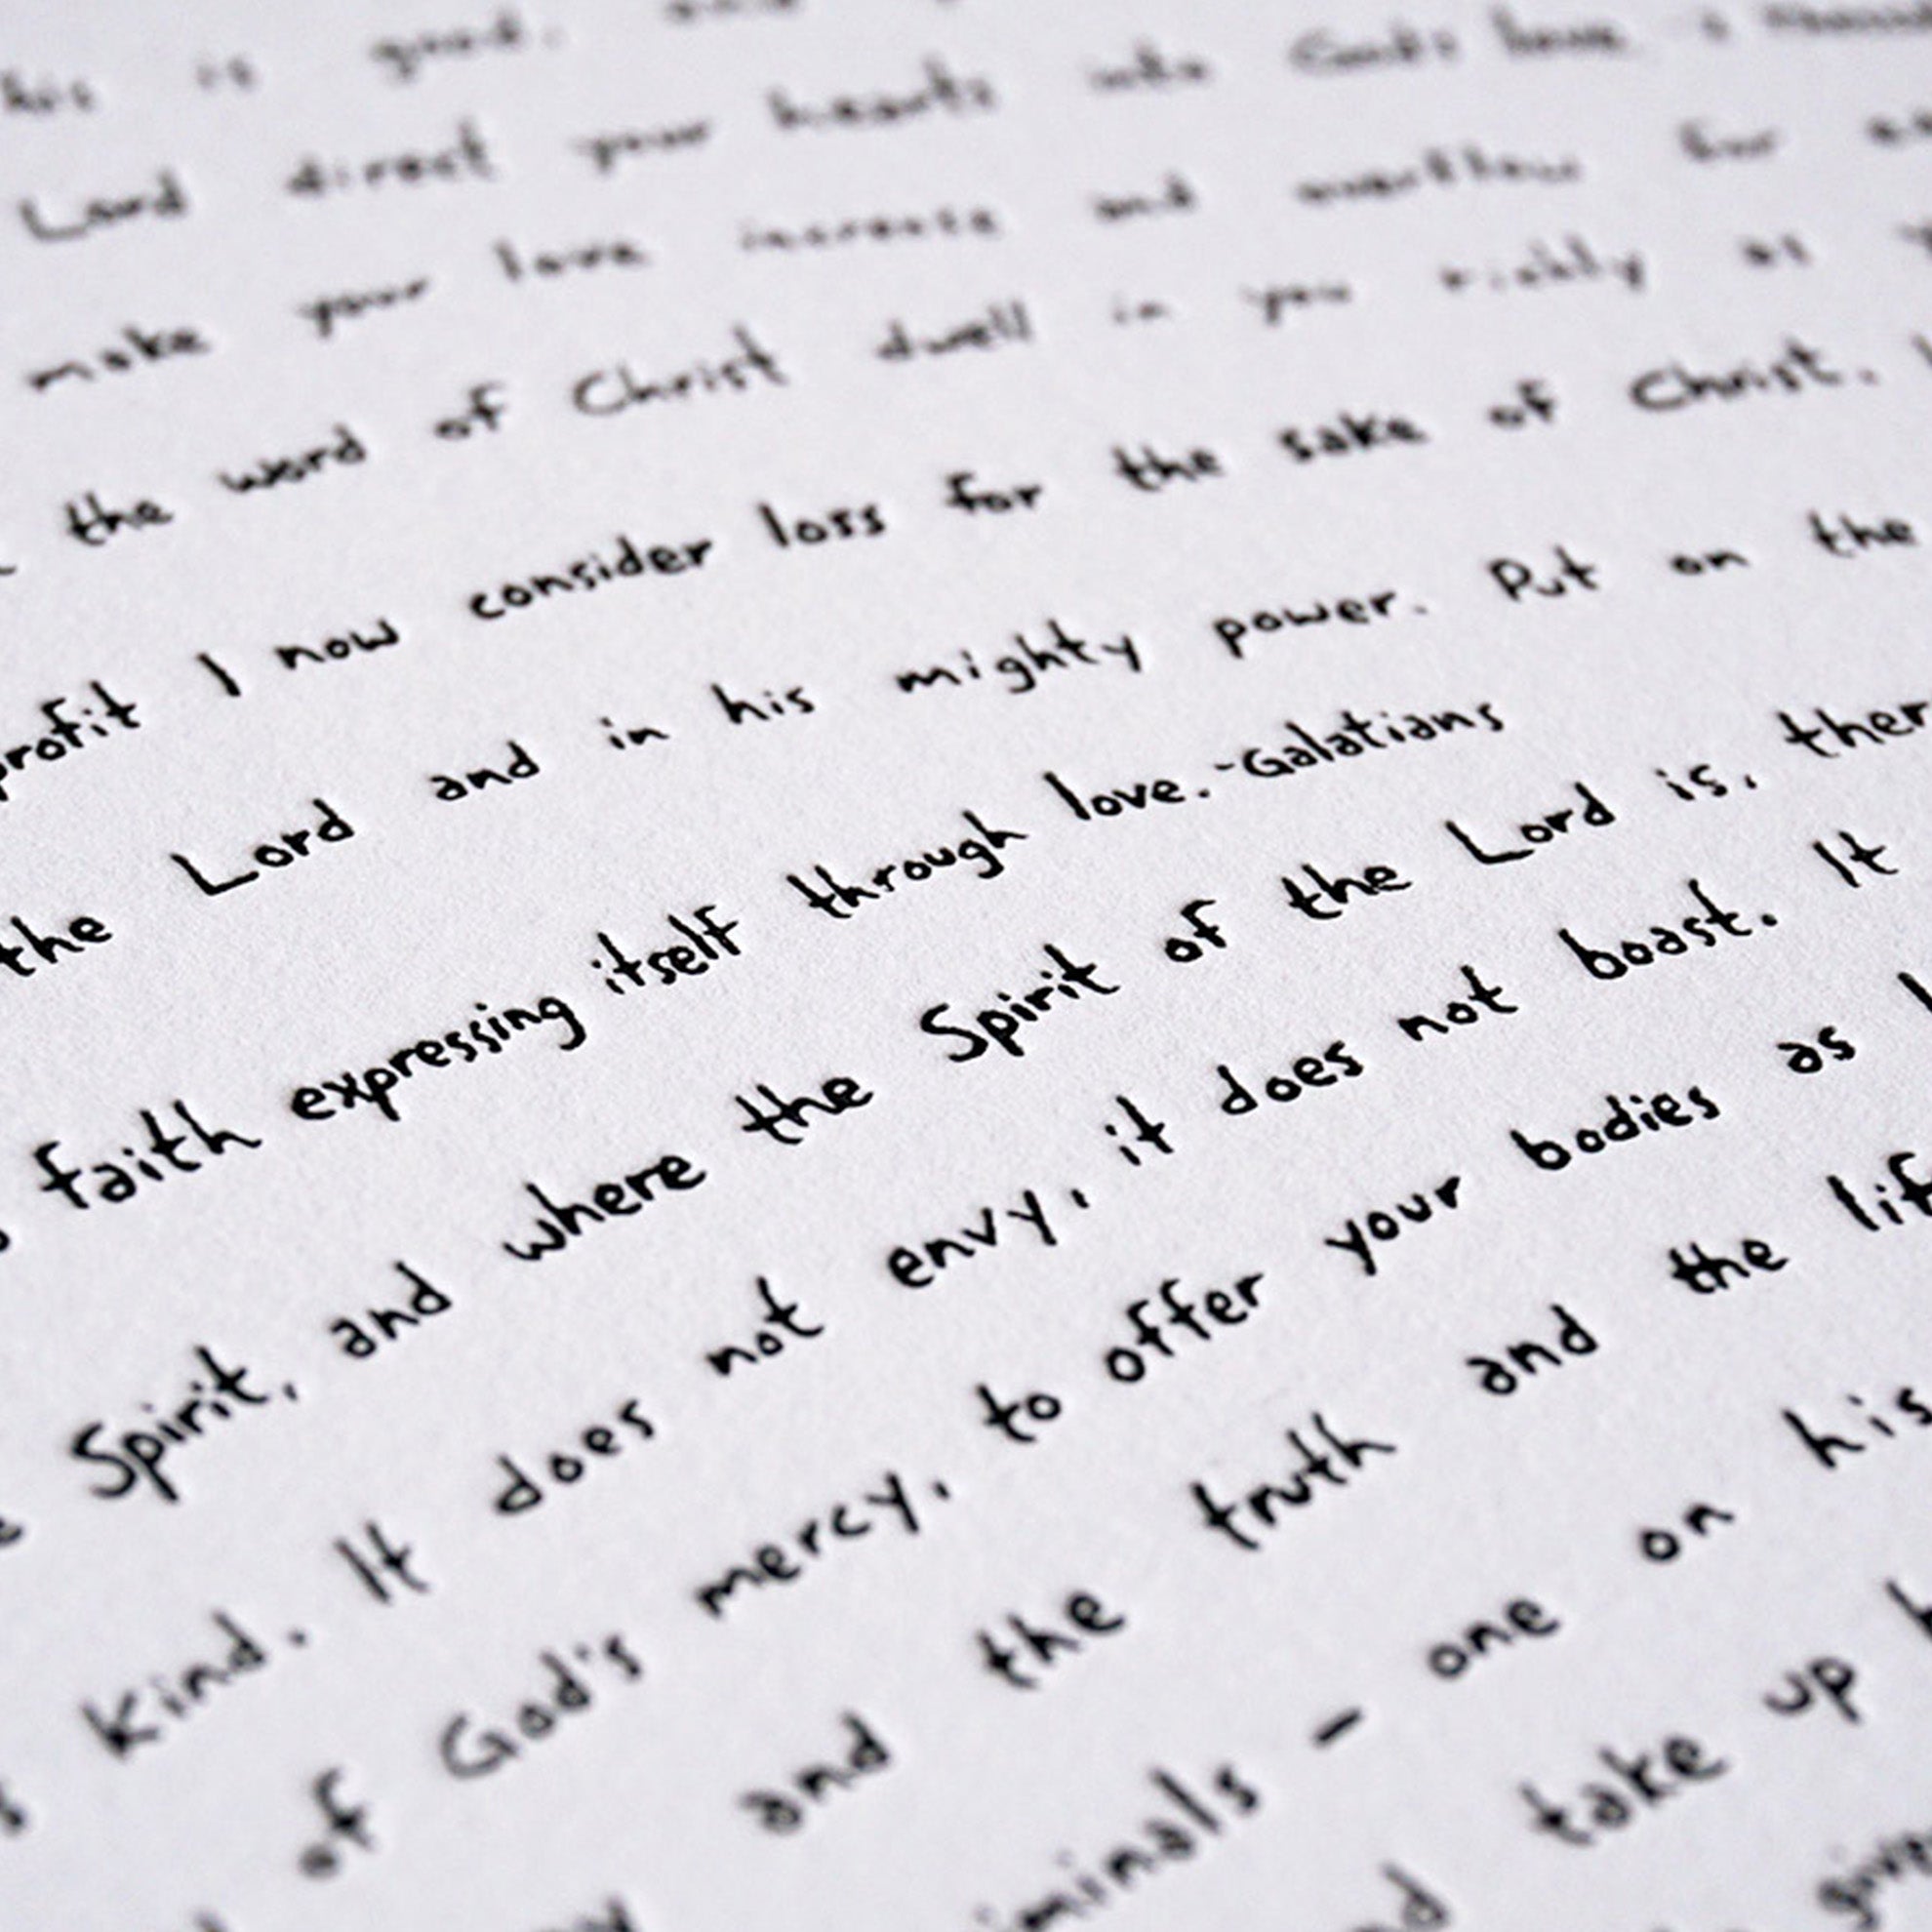 his is good.
Lord direct your hearts into God's love
make your love increase and overflow for
the word of Christ dwell in you richly as
profit I now consider loss for the sake of Christ.
the Lord and in his mighty power. Put on the
faith expressing itself through love.-Galatians
Spirit, and where the Spirit of the Lord is, ther
kind. It does not envy, it does not boast. It
of God's mercy, to offer your bodies as
and the truth and the lif
iminals - one on his
take up